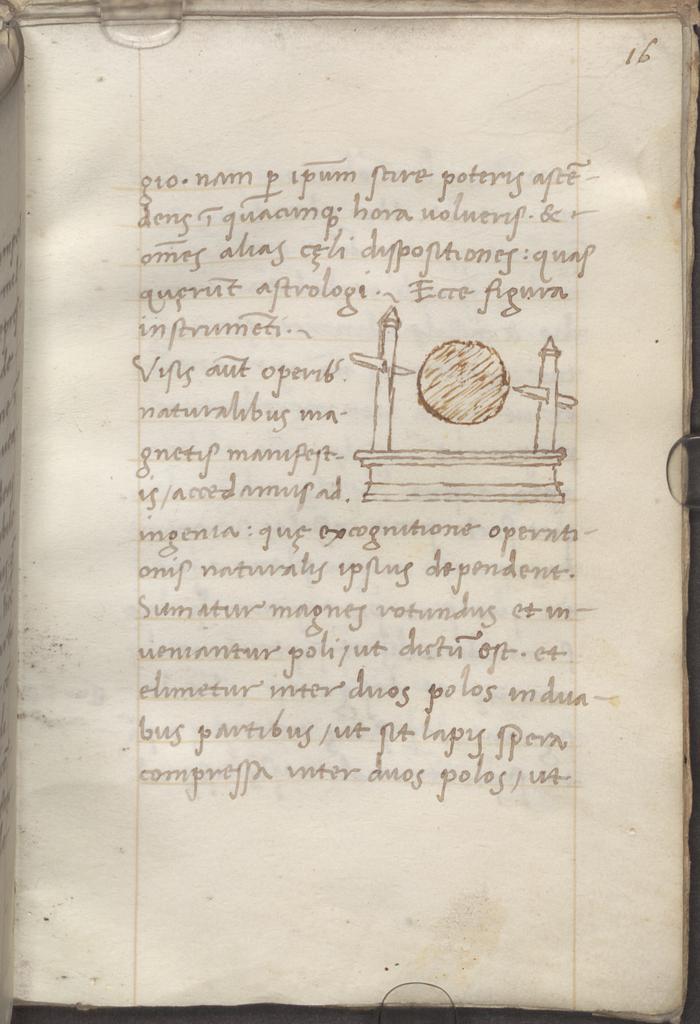 16
gio. nam p̱ ip̄um scire poteris ascē-
dens ī quacunq; hora volueris. &
om̄es alias cęli dispositiones: quas
quęrūt astrologi. Ecce figura
instrumēti.
Visis aūt operib;
naturalibus ma-
gnetis manifest-
is, accedamus ad.
ingenia: quę excognitione operati-
onis naturalis ipsius dependent.
Sumatur magnes rotundus et in-
veniantur poli, ut dictū est. et
elimetur inter duos polos in dua-
bus partibus, ut sit lapis spera
compressa inter duos polos, ut